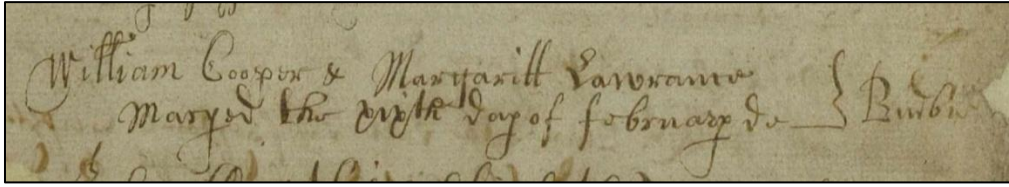 William Cooper & Margaritt Lawrance
Maryed the xixth day of february de } Budbe